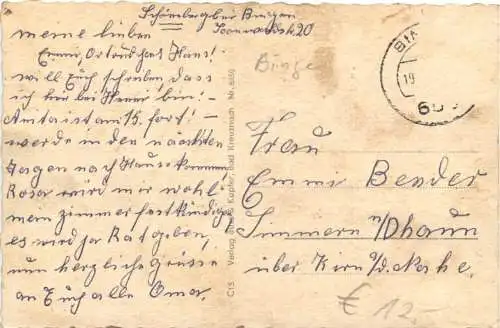 Schönberg bei Bingen
Soonwaldstr. 20
meine lieben
Emmi, Ortrud u. Hans!
will Euch schreiben, dass
ich hier bei Henni bin!-
Anita ist am 15. fort! -
werde in den nächsten
Tagen nach Hause kommen
Rosa wird mir wohl
mein Zimmer fest kündigen
es wird ja Rat geben,
nun herzliche Grüsse
an Euch alle Oma.
C15 Verlag Kupfer, Bad Kreuznach Nr.
Binge
BIN
19
Frau
Emmi Bender
Simmern n/Dhaun
über Kirn a/d. Nahe.
€ 12-